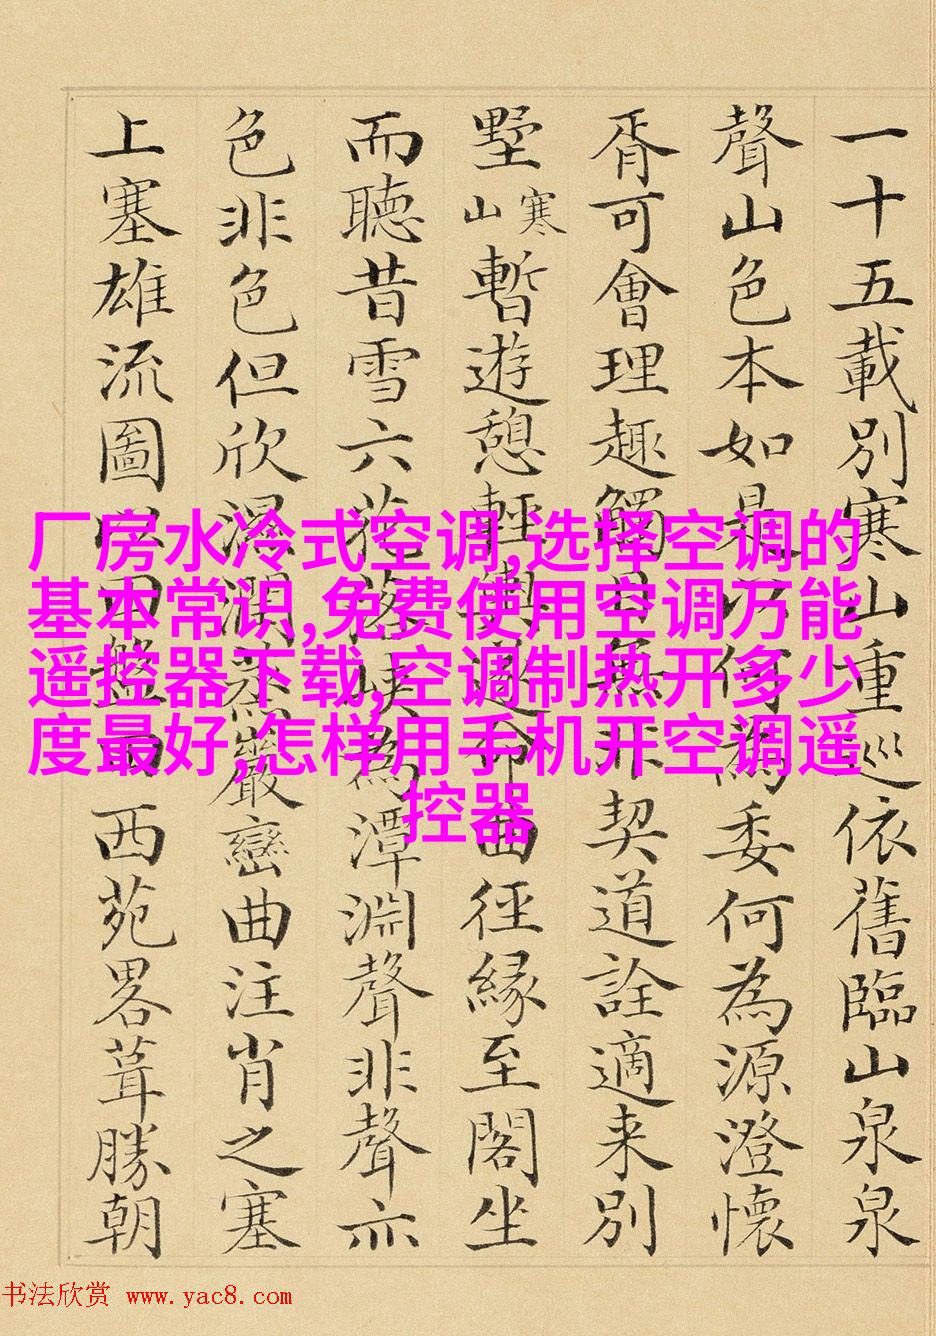 一十五載別寒山重巡依舊臨山泉泉
聲山色本如是何為委何為源澄懷
胥可會理趣觸目無非契道詮適来別
墅寒山暫遊憩輕輿命曲徑緣至閣坐
而聽昔雪六花落為潭淵聲非聲亦
色非色但欣濕潤蒸巖巒曲注肖之塞
上塞雄流圖西苑畧葺勝朝
厂房水冷式空调,选择空调的
基本常识,免费使用空调万能
遥控器下载,空调制热开多少
度最好,怎样用手机开空调遥
控器
书法欣赏 www.yac8.com